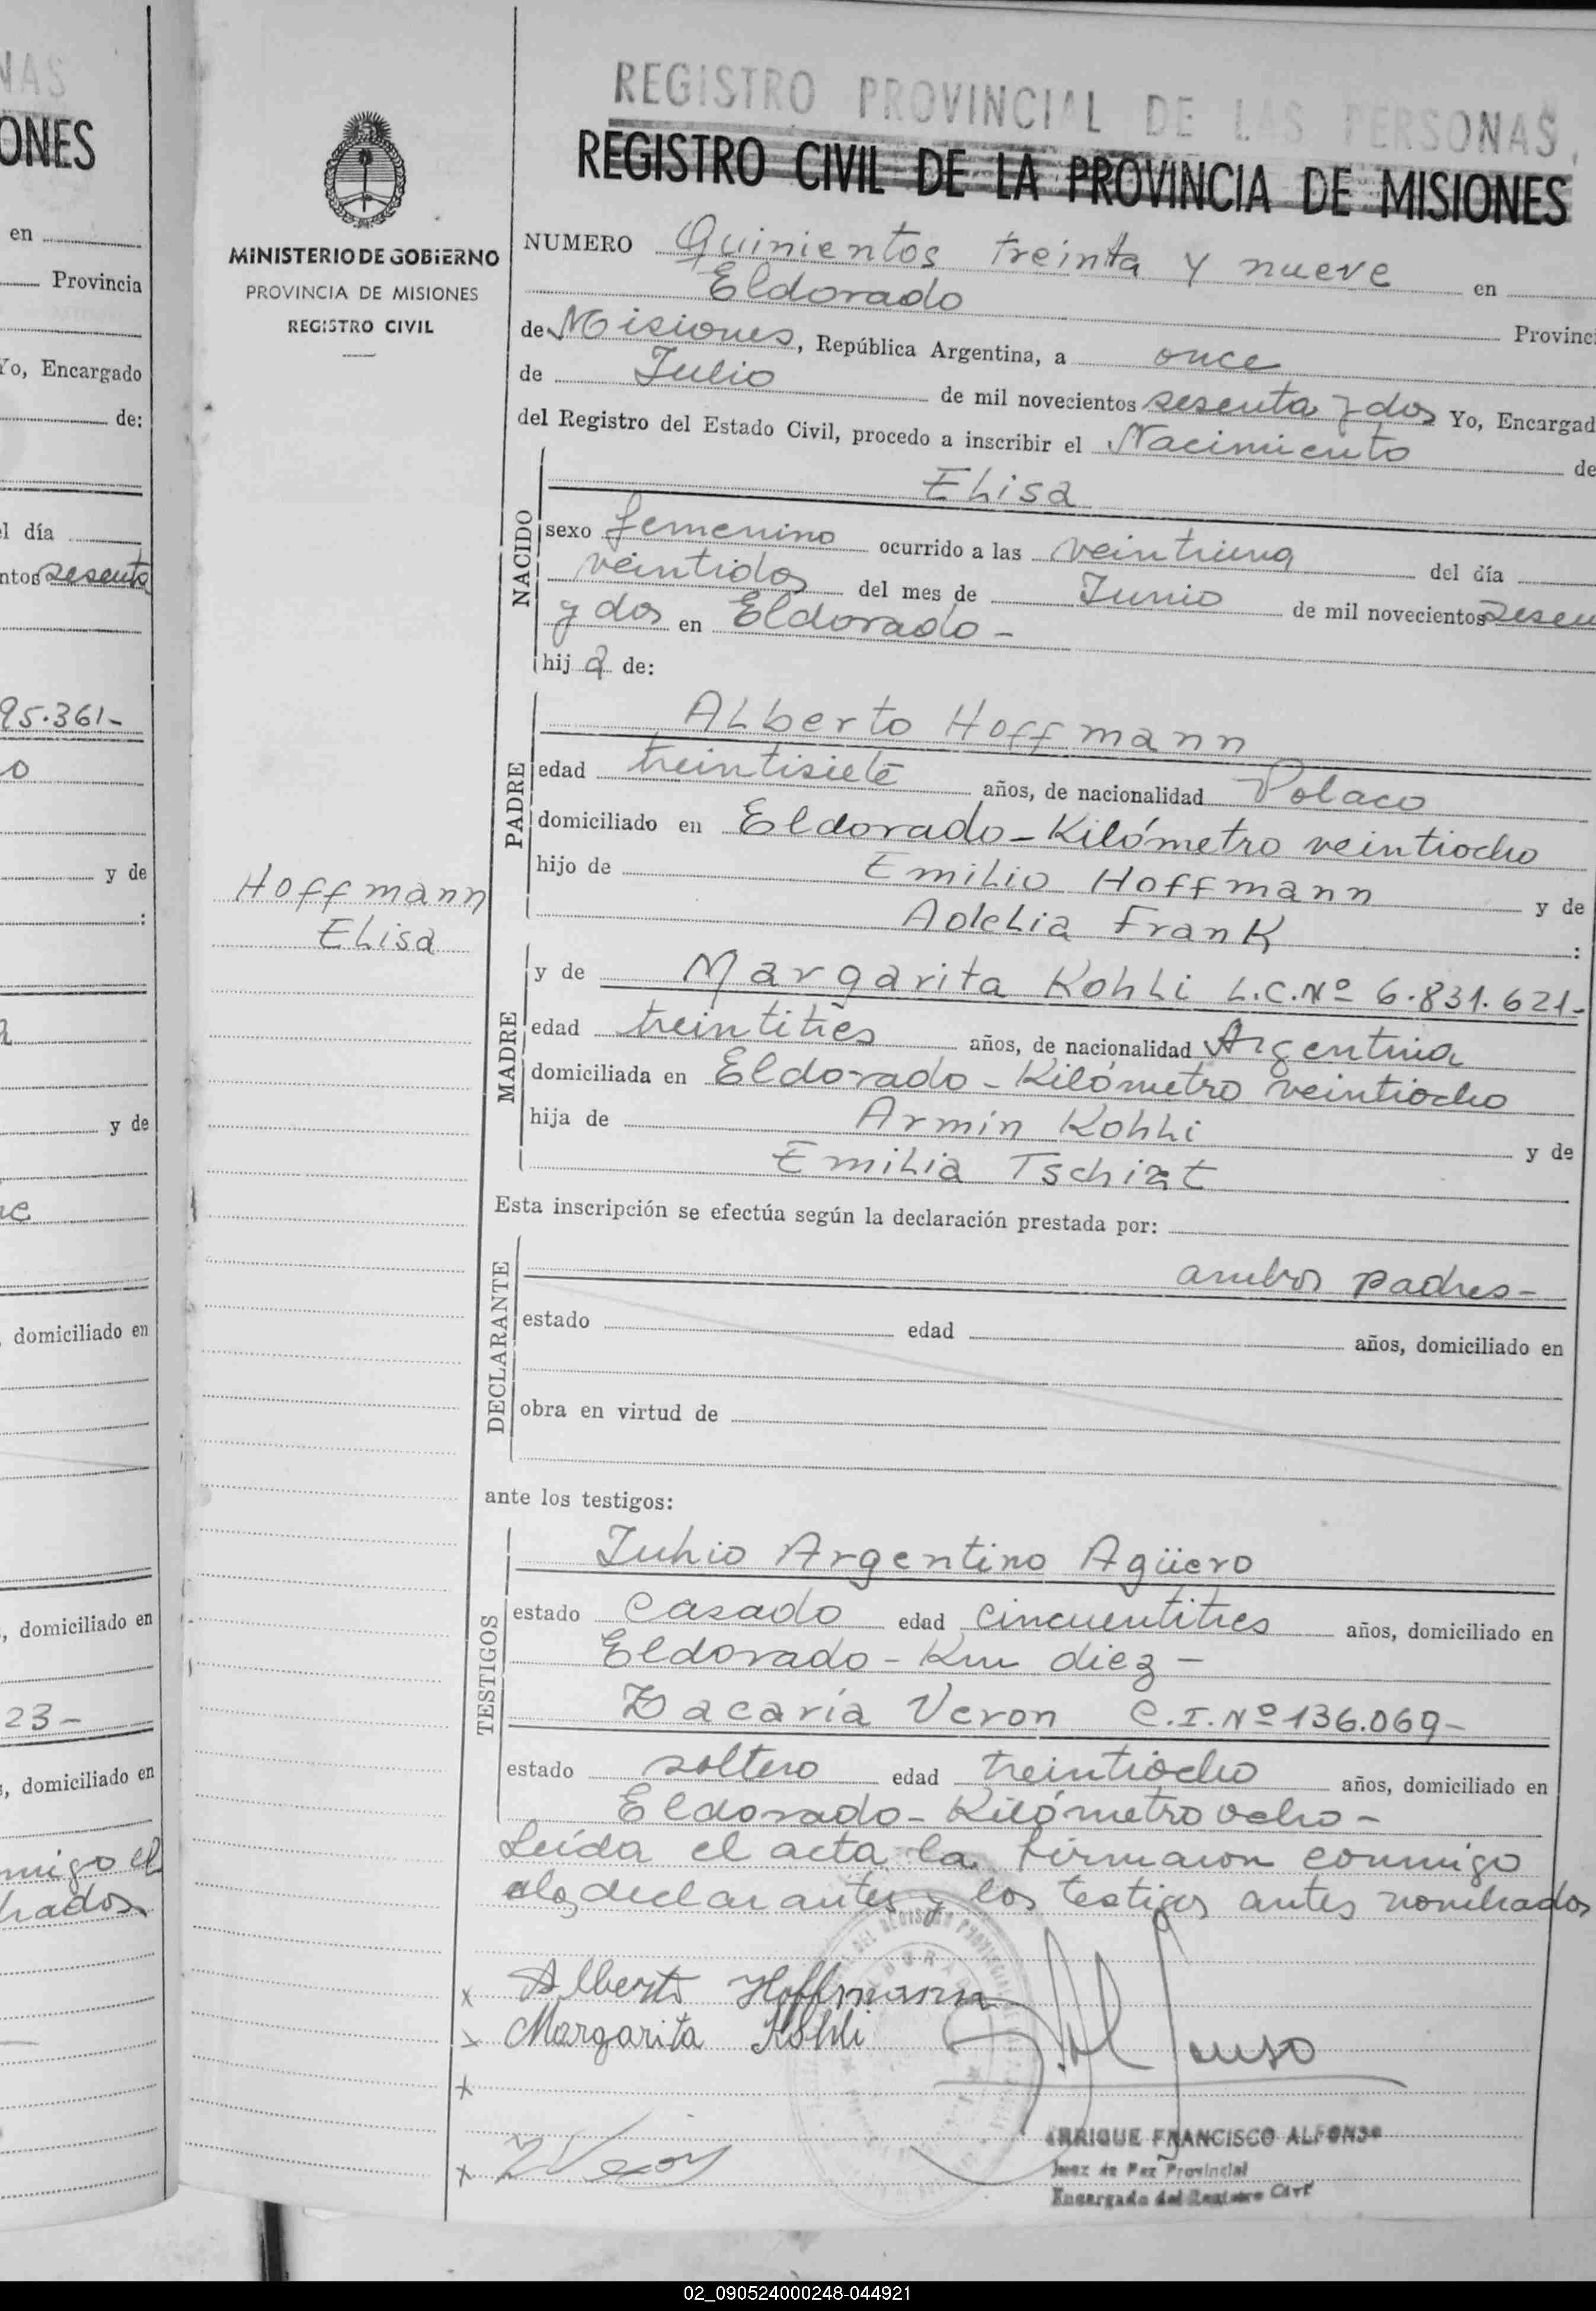 NAS
ONES
en
Provincia
Yo, Encargado
de:
el día
ntos sesenta
95.361-
o
y de
:
y de
domiciliado en
, domiciliado en
23-
, domiciliado en
migo el
brados
MINISTERIO DE GOBIERNO
PROVINCIA DE MISIONES
REGISTRO CIVIL
Hoffmann
Elisa
REGISTRO PROVINCIAL DE LAS PERSONAS.
REGISTRO CIVIL DE LA PROVINCIA DE MISIONES
NUMERO Quinientos treinta y nueve en
Eldorado Provinc
de Misiones, República Argentina, a once
de Julio de mil novecientos sesenta y dos Yo, Encargad
del Registro del Estado Civil, procedo a inscribir el Nacimiento de
NACIDO
Elisa
sexo femenino ocurrido a las veintiuna del día
veintidos del mes de Junio de mil novecientos sesen
y dos en Eldorado -
hija de:
PADRE
Alberto Hoffmann
edad treintisiete años, de nacionalidad Polaco
domiciliado en Eldorado - Kilómetro veintiocho
hijo de Emilio Hoffmann y de
Adelia Frank :
MADRE
y de Margarita Kohli L.C.Nº 6.831.621-
edad treintitres años, de nacionalidad Argentina
domiciliada en Eldorado - Kilómetro veintiocho
hija de Armin Kohli y de
Emilia
Esta inscripción se efectúa según la declaración prestada por:
DECLARANTE
ambos padres-
estado edad años, domiciliado en
obra en virtud de
ante los testigos:
TESTIGOS
Julio Argentino Agüero
estado casado edad cincuentitres años, domiciliado en
Eldorado - Km diez -
Zacaria Veron C.I.Nº 136.069-
estado soltero edad treintiocho años, domiciliado en
Eldorado - Kilómetro ocho -
Leída el acta la firmaron conmigo
los declarantes y los testigos antes nombrados
x Alberto Hoffmann
x Margarita Kohli
x
x ZVeron
ENRIQUE FRANCISCO ALFONSO
Juez de Paz Provincial
Encargado del Registro Civil
02_090524000248-044921